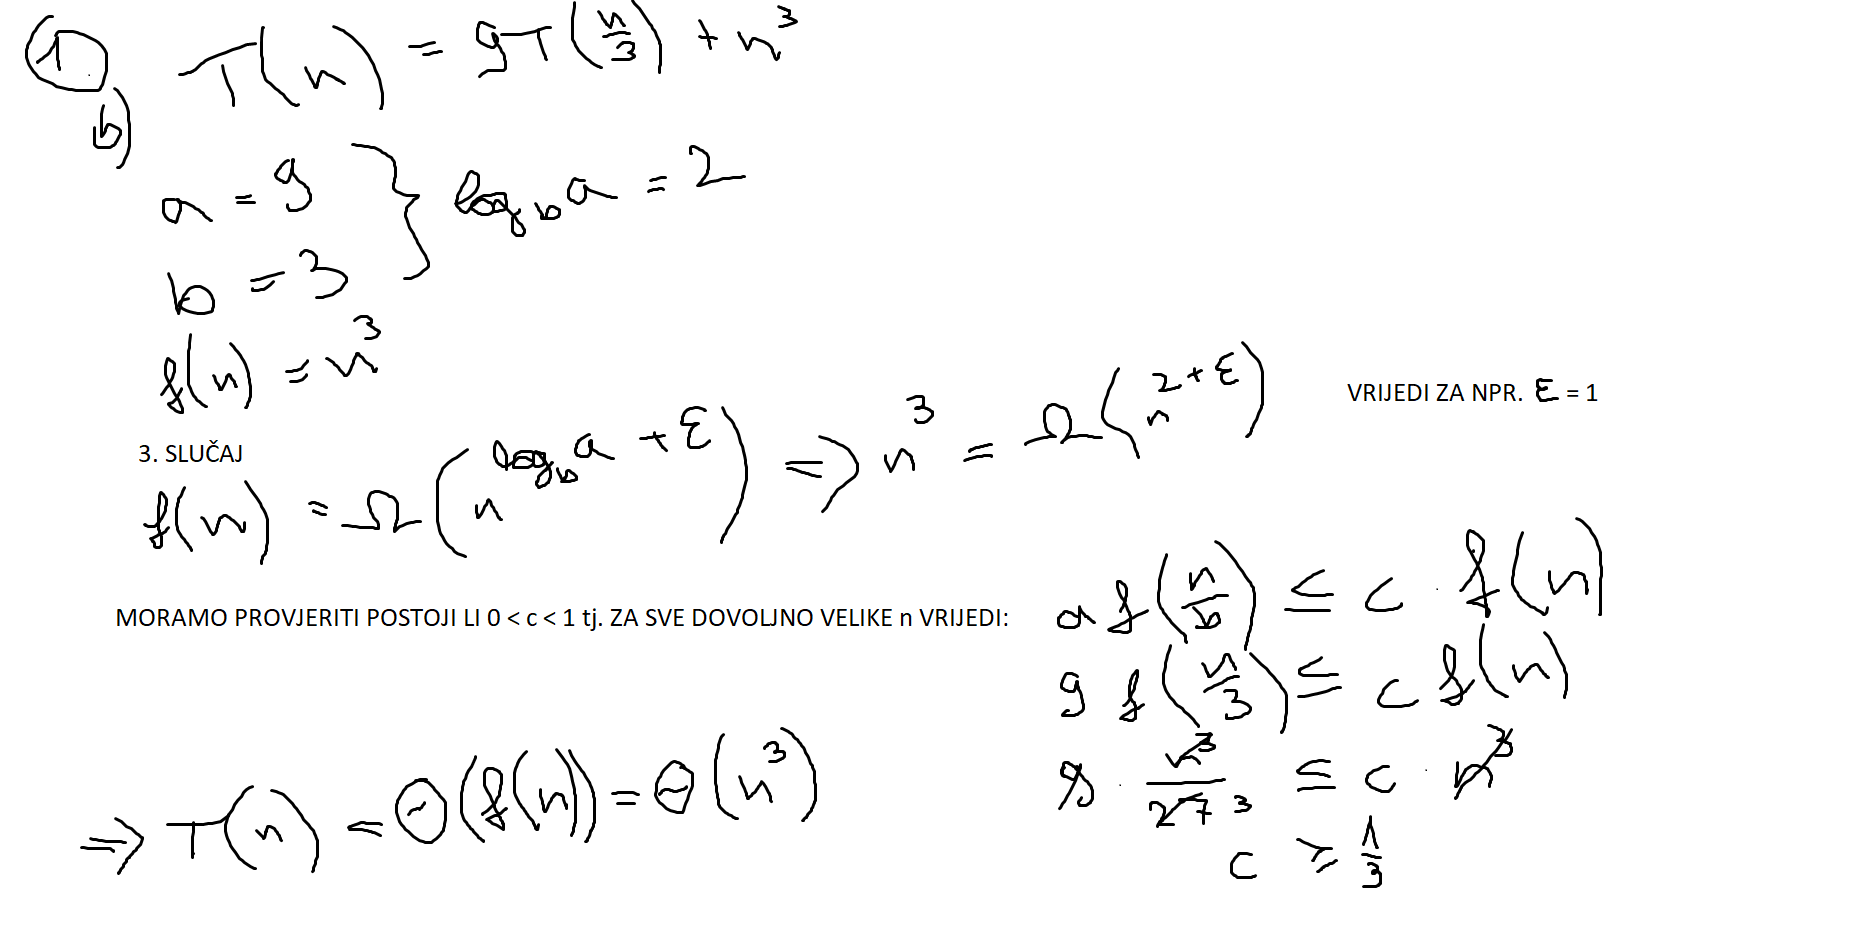 1 T(n) = 9T(n/3) + n^3
b)
a = 9 } log_b a = 2
b = 3
f(n) = n^3
3. SLUČAJ
f(n) = Ω(n^(log_b a + ε)) => n^3 = Ω(n^(2+ε)) VRIJEDI ZA NPR. ε = 1
MORAMO PROVJERITI POSTOJI LI 0 < c < 1 tj. ZA SVE DOVOLJNO VELIKE n VRIJEDI: a f(n/b) ≤ c · f(n)
9 f(n/3) ≤ c f(n)
9 · n^3/27 3 ≤ c · n^3
c ≥ 1/3
=> T(n) = Θ(f(n)) = Θ(n^3)